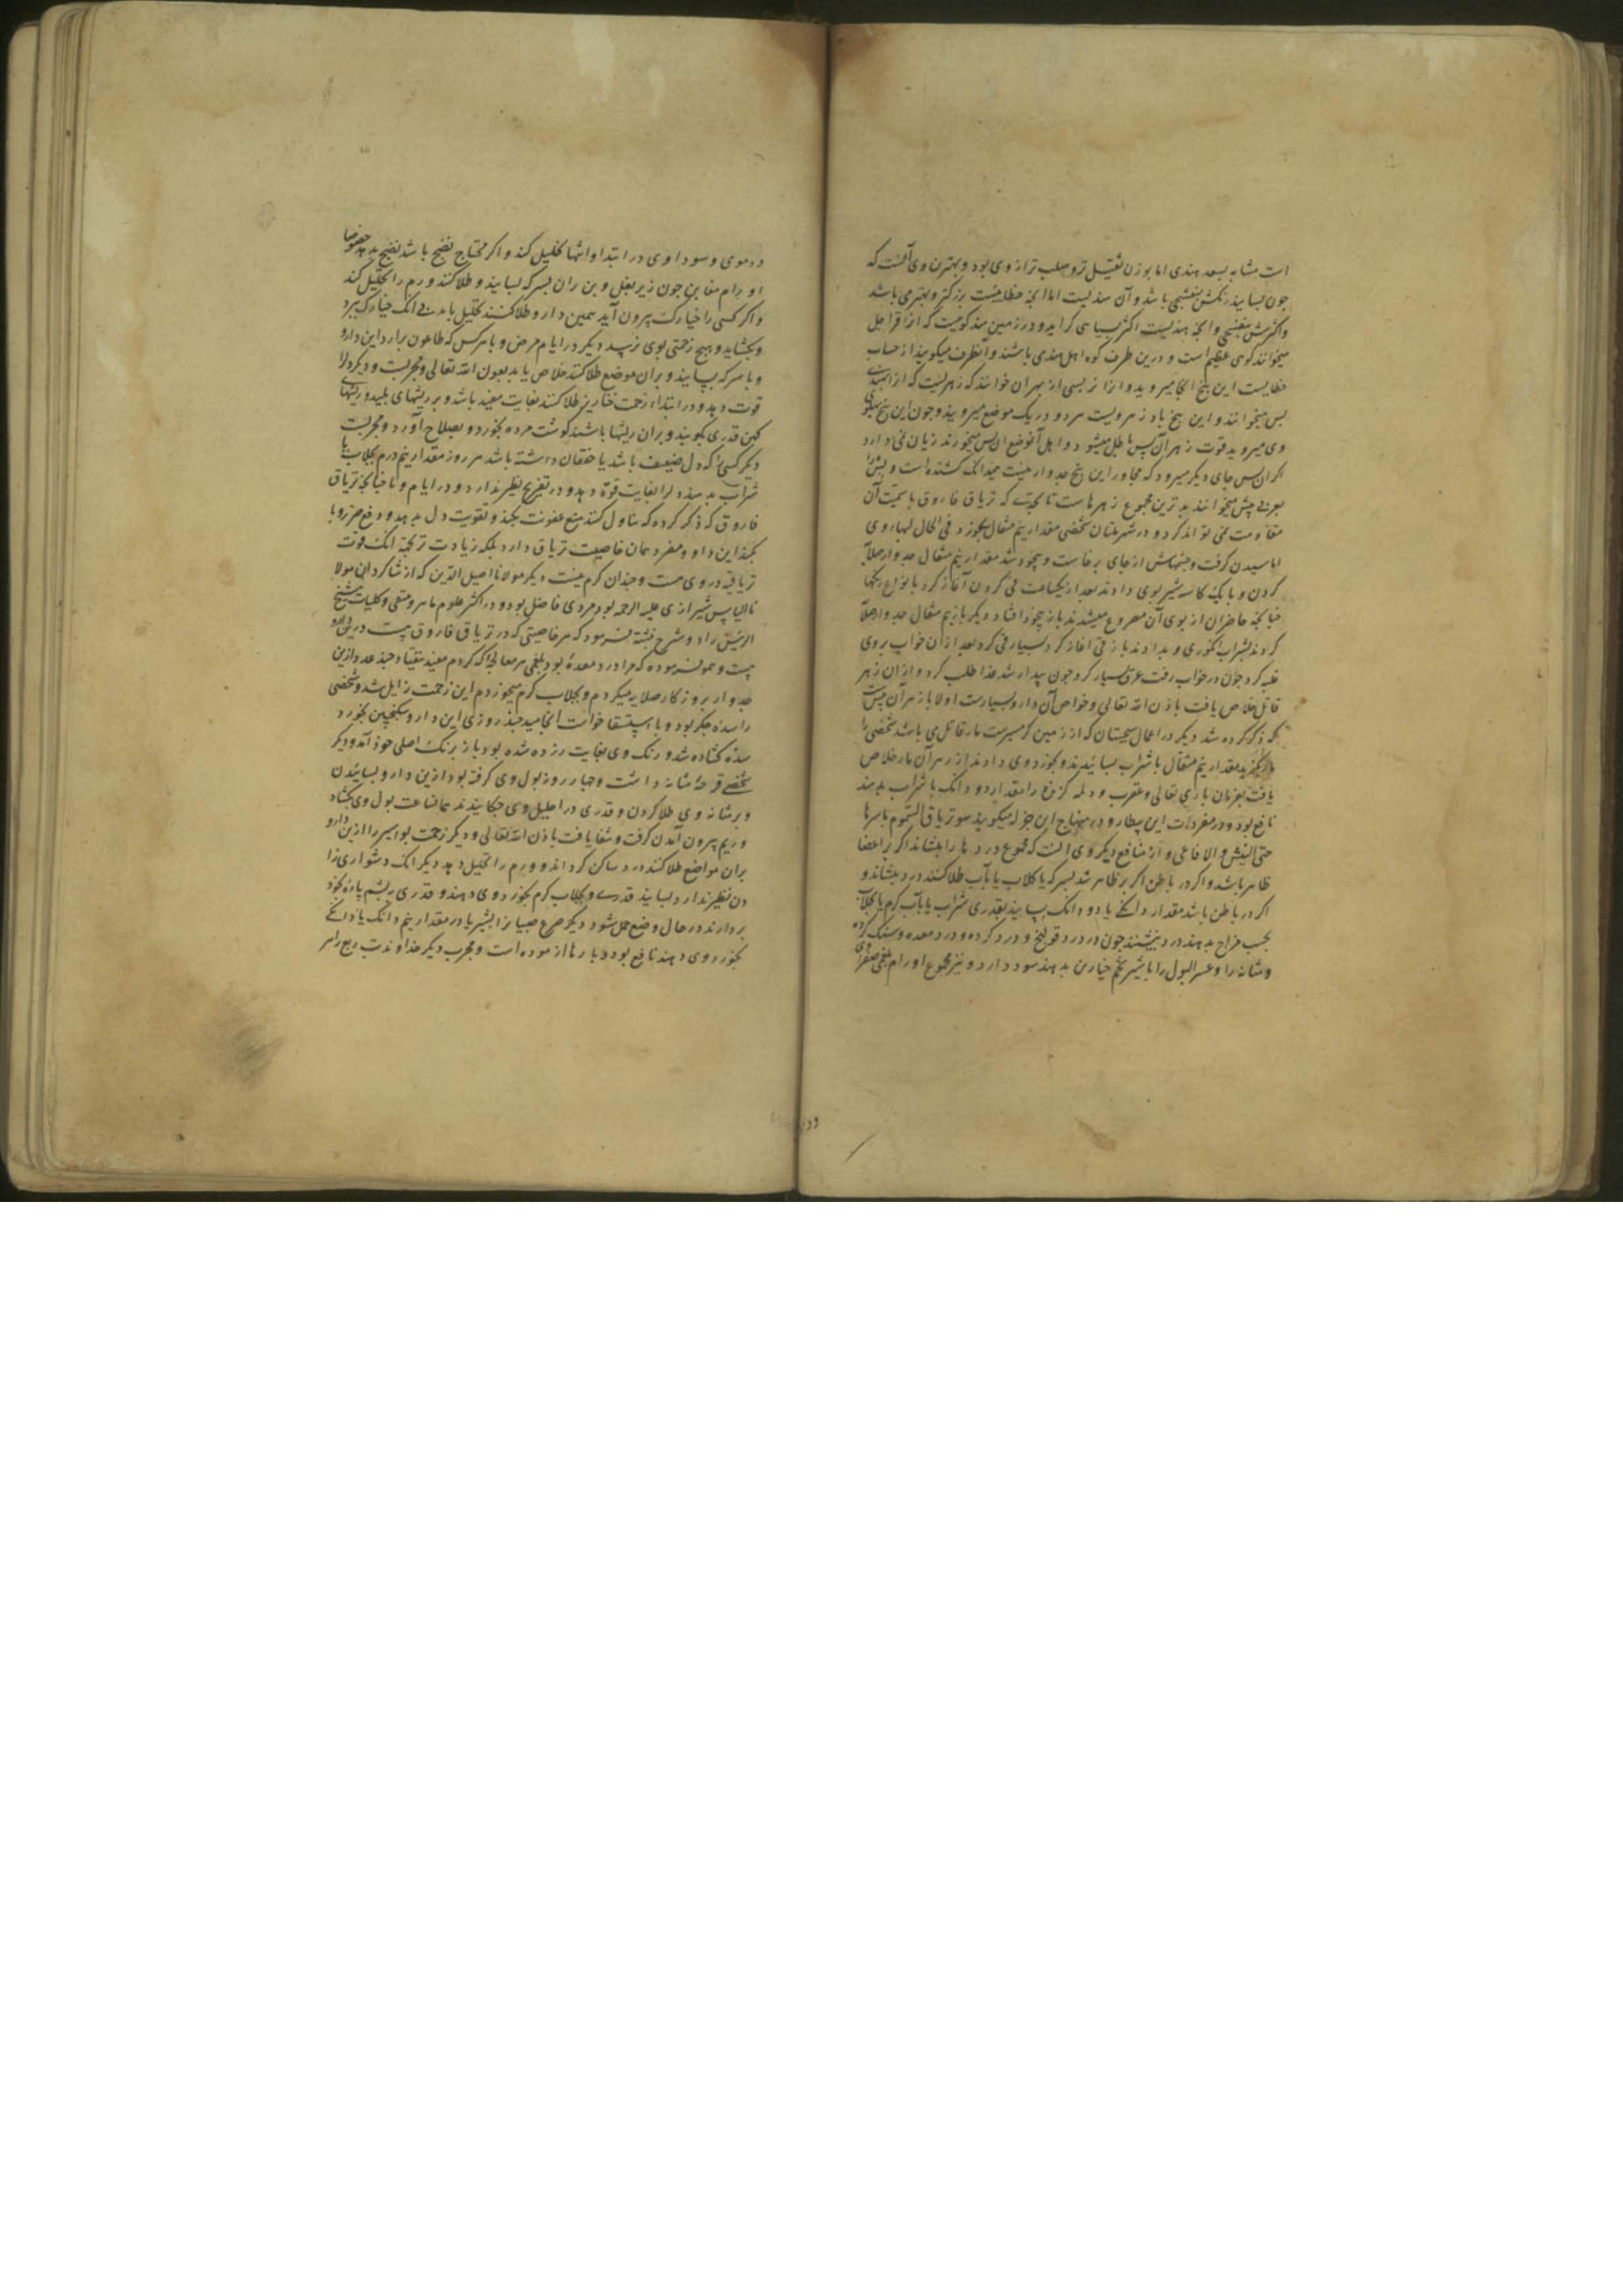 است مشابه بسعد هندی اما بوزن ثقیل تر و صلب تر از وی بود و بهترین وی آنست که
چون بسایند رنکش بنفشجی باشد و آن هندیست اما انچه خطاییست بزرکتر و بهتر می باشد
و اکثرش بنفشجی و انچه هندیست اکثر بسیاهی کراید و در زمین هند کوهیست که انرا فراجل
میخوانند کوهی عظیم است و درین طرف کوه اهل هندی باشند و آنطرف میکویند از حساب
خطایست این بیخ انجا میروید و انرا تربسی از بهر آن خوانند که زهریست که انرا
بس میخوانند و این بیخ باد زهر ویست هر دو در یک موضع میرویند و چون این بیخ
وی میروید قوت زهر آن بس باطل میشود و اهل آنموضع آن بس میخورند زیان نمی دارد
اکر آن بس جای دیکر میرود که مجاور این بیخ جدوار نیست همچندانک کشنده است و بس را
بعربی بیش میخوانند بدترین مجموع زهرهاست تا بحدی که تریاق فاروق با سمیت آن
مقاومت نمی تواند کرد و در شهر ملتان شخصی مقدار نیم مثقال بخورد فی الحال لبهاء وی
اماسیدن کرفت و چشمهاش از جای برخاست و بیخود شد مقدار نیم مثقال جدوار صلایه
کردن و با یک کاسه شیر بوی دادند بعد از یکساعت قی کردن آغاز کرد بانواع رنکها
چنانچه حاضران از بوی آن مصروع میشدند باز بیخود افتاد دیکر باز نیم مثقال جدوار صلایه
کردند بشراب انکوری و بدادند باز قی آغاز کرد بسیار قی کرد بعد از آن خواب بر وی
غلبه کرد چون در خواب رفت عرق بسیار کرد چون بیدار شد غذا طلب کرد و از آن زهر
قاتل خلاص یافت باذن الله تعالی و خواص آن دارو بسیارست اولا باز هر آن بیش است
که ذکر کرده شد دیکر در اعمال سجستان که از زمین کرمسیرست مار قاتل می باشد شخصی را
مار بکزید مقدار نیم مثقال با شراب بسانیدند و بخورد وی دادند از زهر آن مار خلاص
یافت بفرمان باری تعالی و عقرب و دلمه کزنده را مقدار دو دانک با شراب بدهند
نافع بود و در مفردات ابن بیطار و در منهاج ابن جزله میکویند هو تریاق السموم باسرها
حتی البیش و الافاعی و از منافع دیکر وی انست که مجموع دردها را بنشاند اکر بر اعضا
ظاهر باشد و اکر در باطن اکر بر ظاهر شد بسرکه یا کلاب یا بآب طلا کنند درد بنشاند و
اکر در باطن باشد مقدار دانکی یا دو دانک بسایند بقدری شراب یا بآب کرم یا بجلاب
بحسب مزاج بدهند درد بنشیند چون درد قولنج و درد کرده و درد معده و سنک کرده
و مثانه را و عسر البول را با شیر تخم خیارین بدهند سود دارد و نیز مجموع اورام بلغمی صفراوی
و دموی و سوداوی در ابتدا و انتها تحلیل کند و اکر محتاج نضج باشد نضج بدهد خصوصا
اورام مغابن چون زیر بغل و بن ران بسرکه بسایند و طلا کنند ورم را تحلیل کند
و اکر کسی را خیارک بیرون آید همین دارو طلا کنند تحلیل یابد بی انک خیارک ببرد
و بکشاید و هیچ زحمتی بوی نرسد دیکر در ایام مرض وبا هرکس که طاعون برآرد این دارو
و با سرکه بسایند و بر آن موضع طلا کنند خلاص یابد بعون الله تعالی و مجربست و دیکر دل را
قوت دهد و در ابتداء زحمت خنازیر طلا کنند بغایت مفید باشد و بر ریشهای بلید و ریشهای
کهن قدری بکویند و بر آن ریشها باشند کوشت مرده بخورد و بصلاح آورد و مجربست
دیکر کسی را که دل ضعیف باشد یا خفقان داشته باشد هر روز مقدار نیم درم بجلاب یا
شراب بدهند دل را بغایت قوة دهد و در تفریح نظیر ندارد و در ایام وبا چنانچه تریاق
فاروق که ذکر کرده که تناول کنند منع عفونت بکند و تقویت دل بدهد و دفع ضرر وبا
بکند این داروء مفرد همان خاصیت تریاق دارد بلکه زیادت تر بجهة انک قوت
تریاقیه در وی هست و چندان کرم نیست دیکر مولانا اصیل الدین که از شاکردان مولا
نا الیاس شیرازی علیه الرحمه بود مردی فاضل بود و در اکثر علوم ماهر و متقی و کلیات شیخ
الرئیس را دو شرح نبشته فرمود که هر خاصیتی که در تریاق فاروق هست درین دارو
هست و همو فرموده که مرا درد معدهٔ بود بلغمی هر معالجه که کردم مفید نیفتاد چند عدد ازین
جدوار بروزکار صلایه میکردم و بجلاب کرم میخوردم این زحمت زایل شد و شخصی
را سدهٔ جکر بود و باستسقا خواست انجامید چند روزی این دارو بسکنجبین بخورد
سده کشاده شد و رنک وی بغایت زرد شده بود باز برنک اصلی خود آمد و دیکر
شخصی قرحهٔ مثانه داشت و چهار روز بول وی کرفته بود ازین دارو بسانیدن
و بر مثانه وی طلا کردن و قدری در احلیل وی چکانیدند همانساعت بول وی بکشاد
و ریم بیرون آمدن کرفت و شفا یافت باذن الله تعالی و دیکر زحمت بواسیر را ازین دارو
بر آن مواضع طلا کنند درد ساکن کرداند و ورم را تحلیل دهد دیکر انک دشواری زا
دن نظیر ندارد بسایند قدری و بجلاب کرم بخورد وی دهند و قدری بپشم پاره بخود
بردارند در حال وضع حمل شود دیکر صرع صبیان را بشیر مادر مقدار نیم دانک یا دانکی
بخورد وی دهند نافع بود و بارها ازموده است و مجرب دیکر خداوند تب ربع را سر